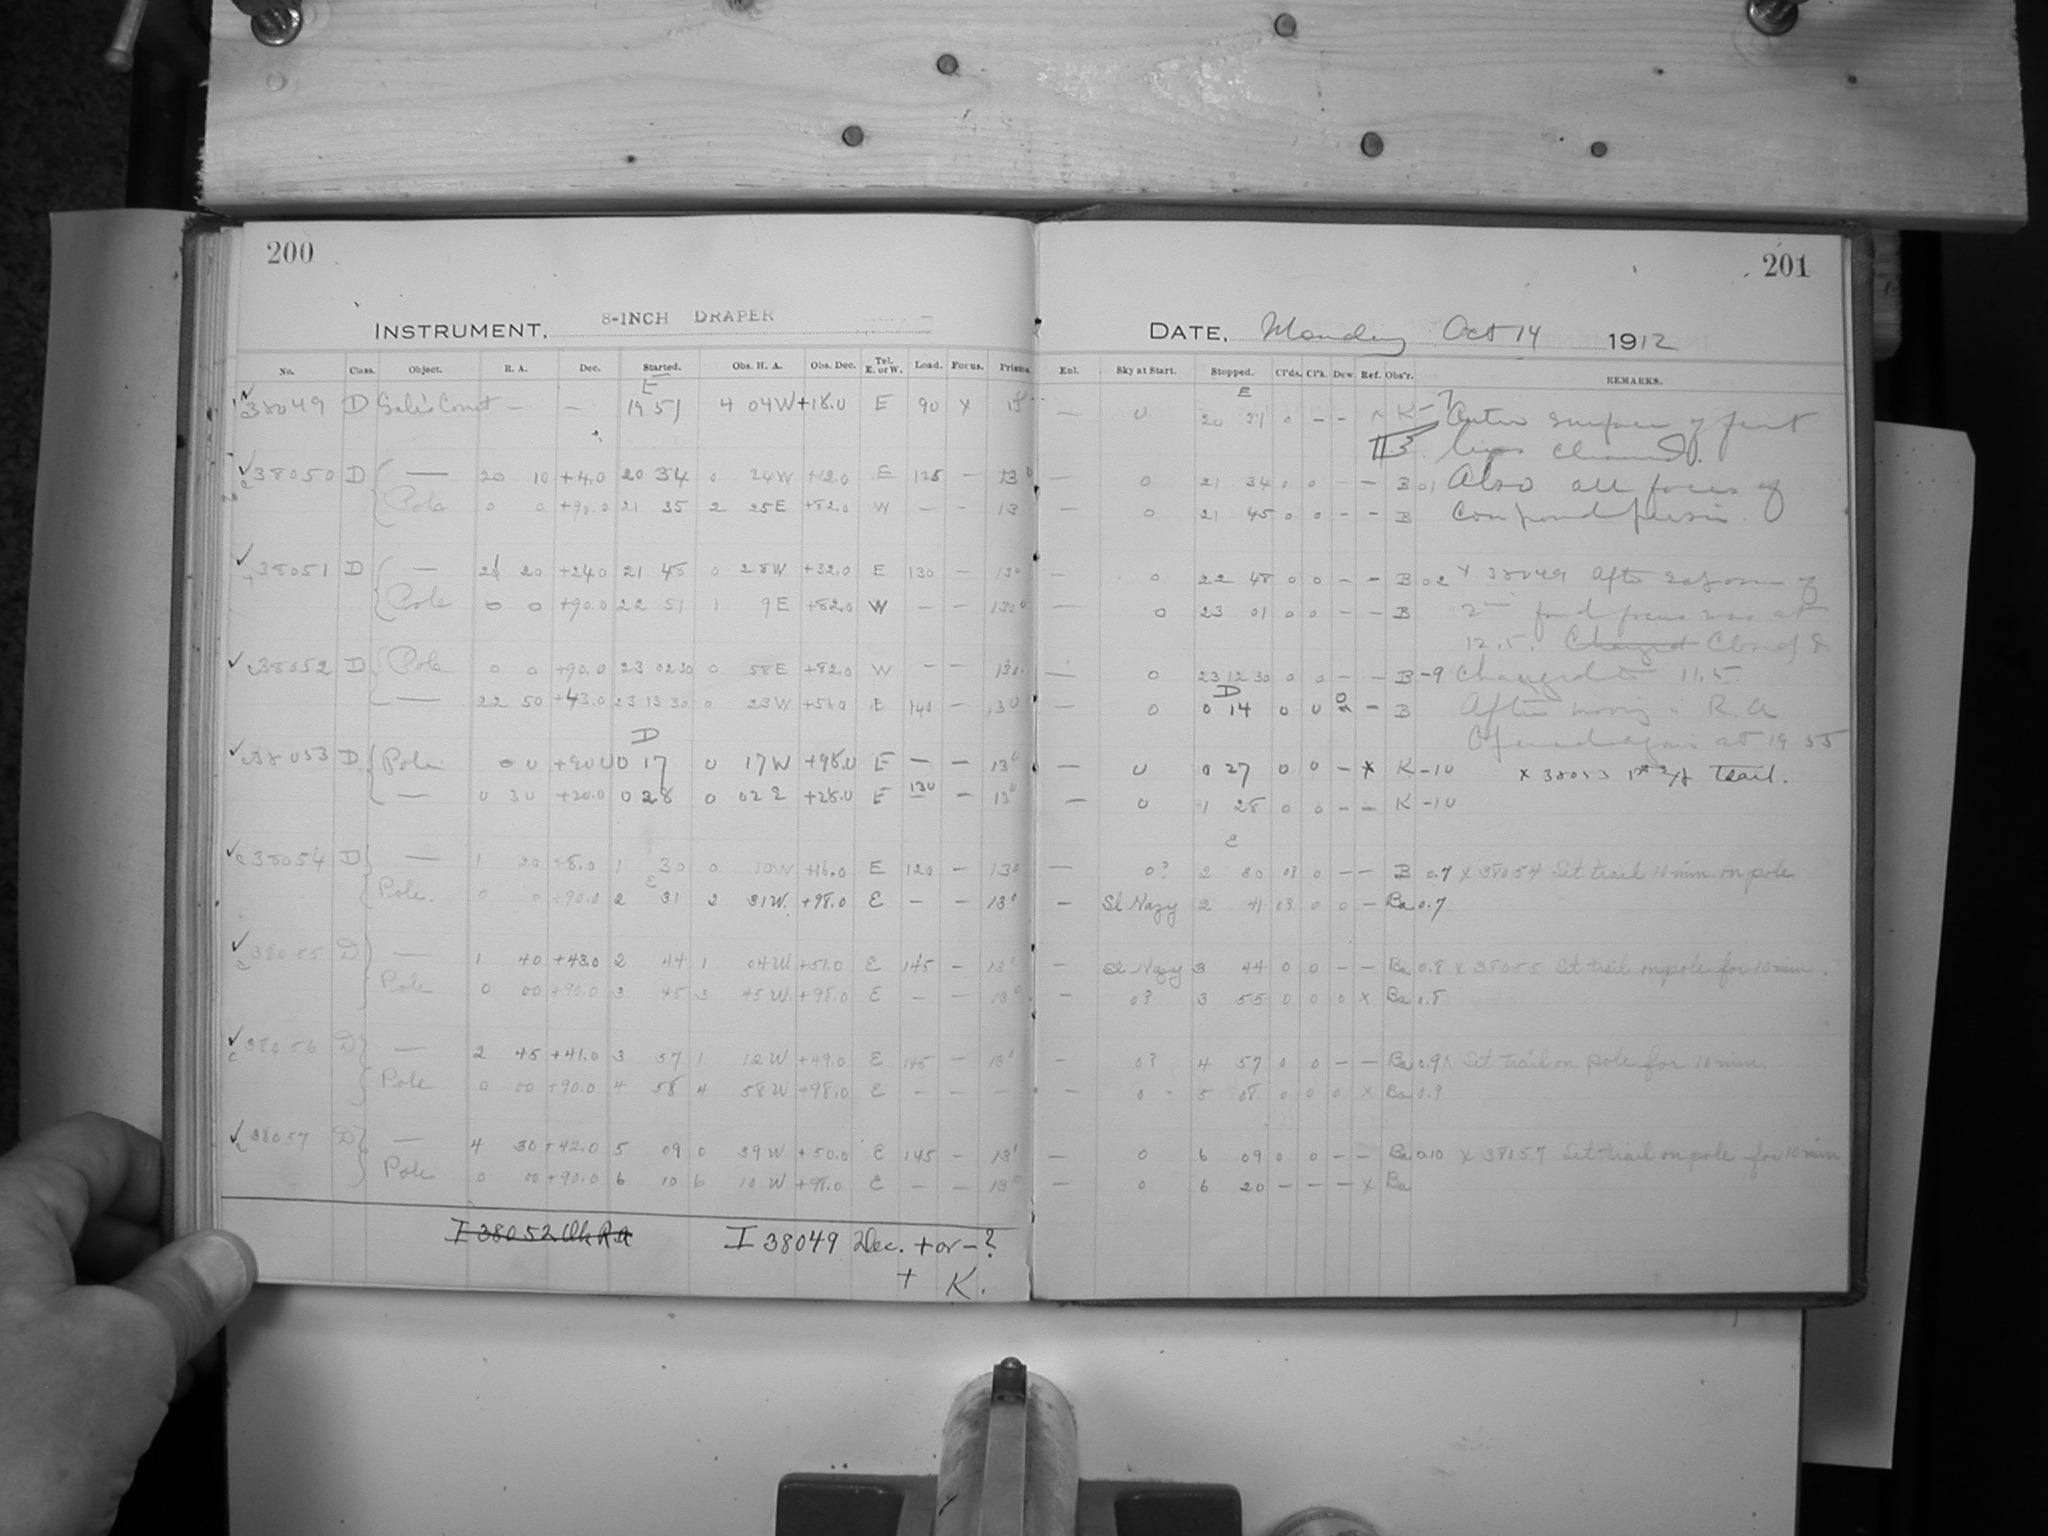 200
201
INSTRUMENT, 8-INCH DRAPER
DATE, Monday Oct 14 1912
No. Class. Object. R. A. Dec. Started. Obs. H. A. Obs. Dec. Tel. E. or W. Load. Focus. Prisms.
Enl. Sky at Start. Stopped. Cl'ds. Cl'k. Dew. Ref. Obs'r. REMARKS.
E
E
38049 D Gale's Comet — — 19 51 4 04 W +18.0 E 90 x
— 0 20 0 — — K Outer surface of
11.3
38050 D — 20 10 +4.0 20 34 0 24 W +12.0 E 125 — 13
— 0 21 34 0 0 — — B Also all focus of
Pole 0 0 +90.0 21 35 2 25 E +82.0 W — — 13
— 0 21 45 0 0 — — B Compound
38051 D — 20 +24.0 21 48 0 28 W +32.0 E 130 — 13°
— 0 22 48 0 0 — — B x 38049 After of
Pole 0 0 +90.0 22 51 1 9 E +82.0 W — — 13°
— 0 23 01 0 0 — — B 2nd found focus was at
12.5. Changed Closed &
38052 D Pole 0 0 +90.0 23 02 30 0 58 E +82.0 W — — 13°
— 0 23 12 30 0 0 — — B -9 Changed to 11.5
D
— 22 50 +43.0 23 13 30 0 23 W +51.0 E 140 — 13°
— 0 0 14 0 0 — B After moving in R.A.
Opened again at 19 55
D
38053 D Pole 0 0 +90.0 0 17 0 17 W +98.0 E — — 13°
— 0 0 27 0 0 — x K -10 x 38053 trail.
— 0 30 +20.0 0 28 0 02 E +28.0 E 130 — 13°
— 0 1 28 0 0 — — K -10
E
38054 D — 1 20 +8.0 1 30 0 10 W +16.0 E 120 — 13°
— 0? 2 30 0? 0 — — B 0.7 x 38054 Set trail 10 min. on pole
E
Pole. 0 0 +90.0 2 31 2 31 W. +98.0 E — — 13°
— Sl Hazy 2 41 0? 0 0 — Ba 0.7
38055 D — 1 40 +43.0 2 44 1 04 W +51.0 E 145 — 13°
— Sl Hazy 3 44 0 0 — — Ba 0.8 x 38055 Set trail on pole for 10 min.
Pole 0 00 +90.0 3 45 3 45 W. +98.0 E — — 13°
— 0? 3 55 0 0 0 x Ba 0.8
38056 D — 2 45 +41.0 3 57 1 12 W +49.0 E 145 — 13°
— 0? 4 57 0 0 — — Ba 0.9 x Set trail on pole for 10 min.
Pole 0 00 +90.0 4 58 4 58 W +98.0 E — — —
— 0 5 08 0 0 0 x Ba 0.9
38057 D — 4 30 +42.0 5 09 0 39 W +50.0 E 145 — 13°
— 0 6 09 0 0 — — Ba 0.10 x 38157 Set trail on pole for 10 min.
Pole 0 00 +90.0 6 10 6 10 W +98.0 E — — 13°
— 0 6 20 — — — x Ba
I 38052 Ok R.A
I 38049 Dec. + or - ?
+ K.